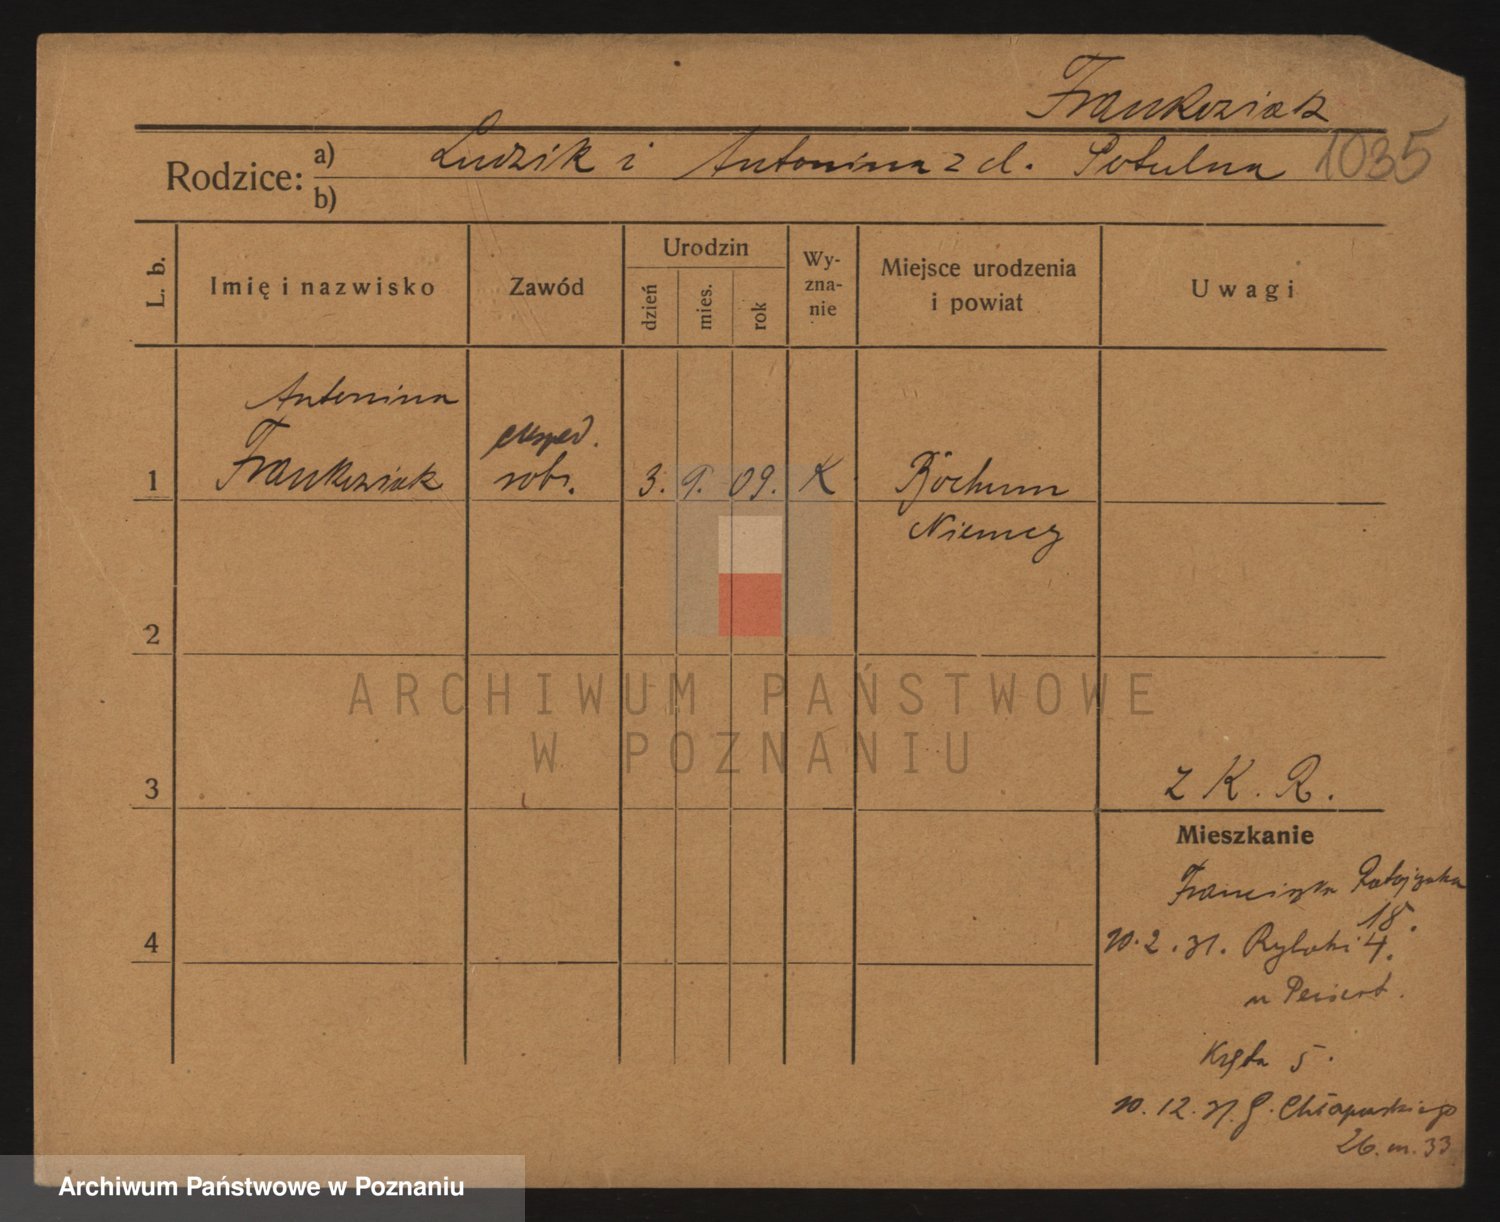 Frankoziak
Rodzice: a) Ludzik i Antonina z d. Potulna 1035
b)
L. b.
Imię i nazwisko
Zawód
Urodzin
dzień
mies.
rok
Wy-
zna-
nie
Miejsce urodzenia
i powiat
Uwagi
Antonina
eksped.
1 Frankoziak robr. 3. 9. 09. K Bochum
Niemcy
2
ARCHIWUM PAŃSTWOWE
W POZNANIU
3
z K. R.
Mieszkanie
Franciszka Ratajczaka
18.
10. 2. 31. Rybaki 4.
u Peisert.
4
Kręta 5.
10. 12. 31. G. Chłapowskiego
26. m. 33
Archiwum Państwowe w Poznaniu